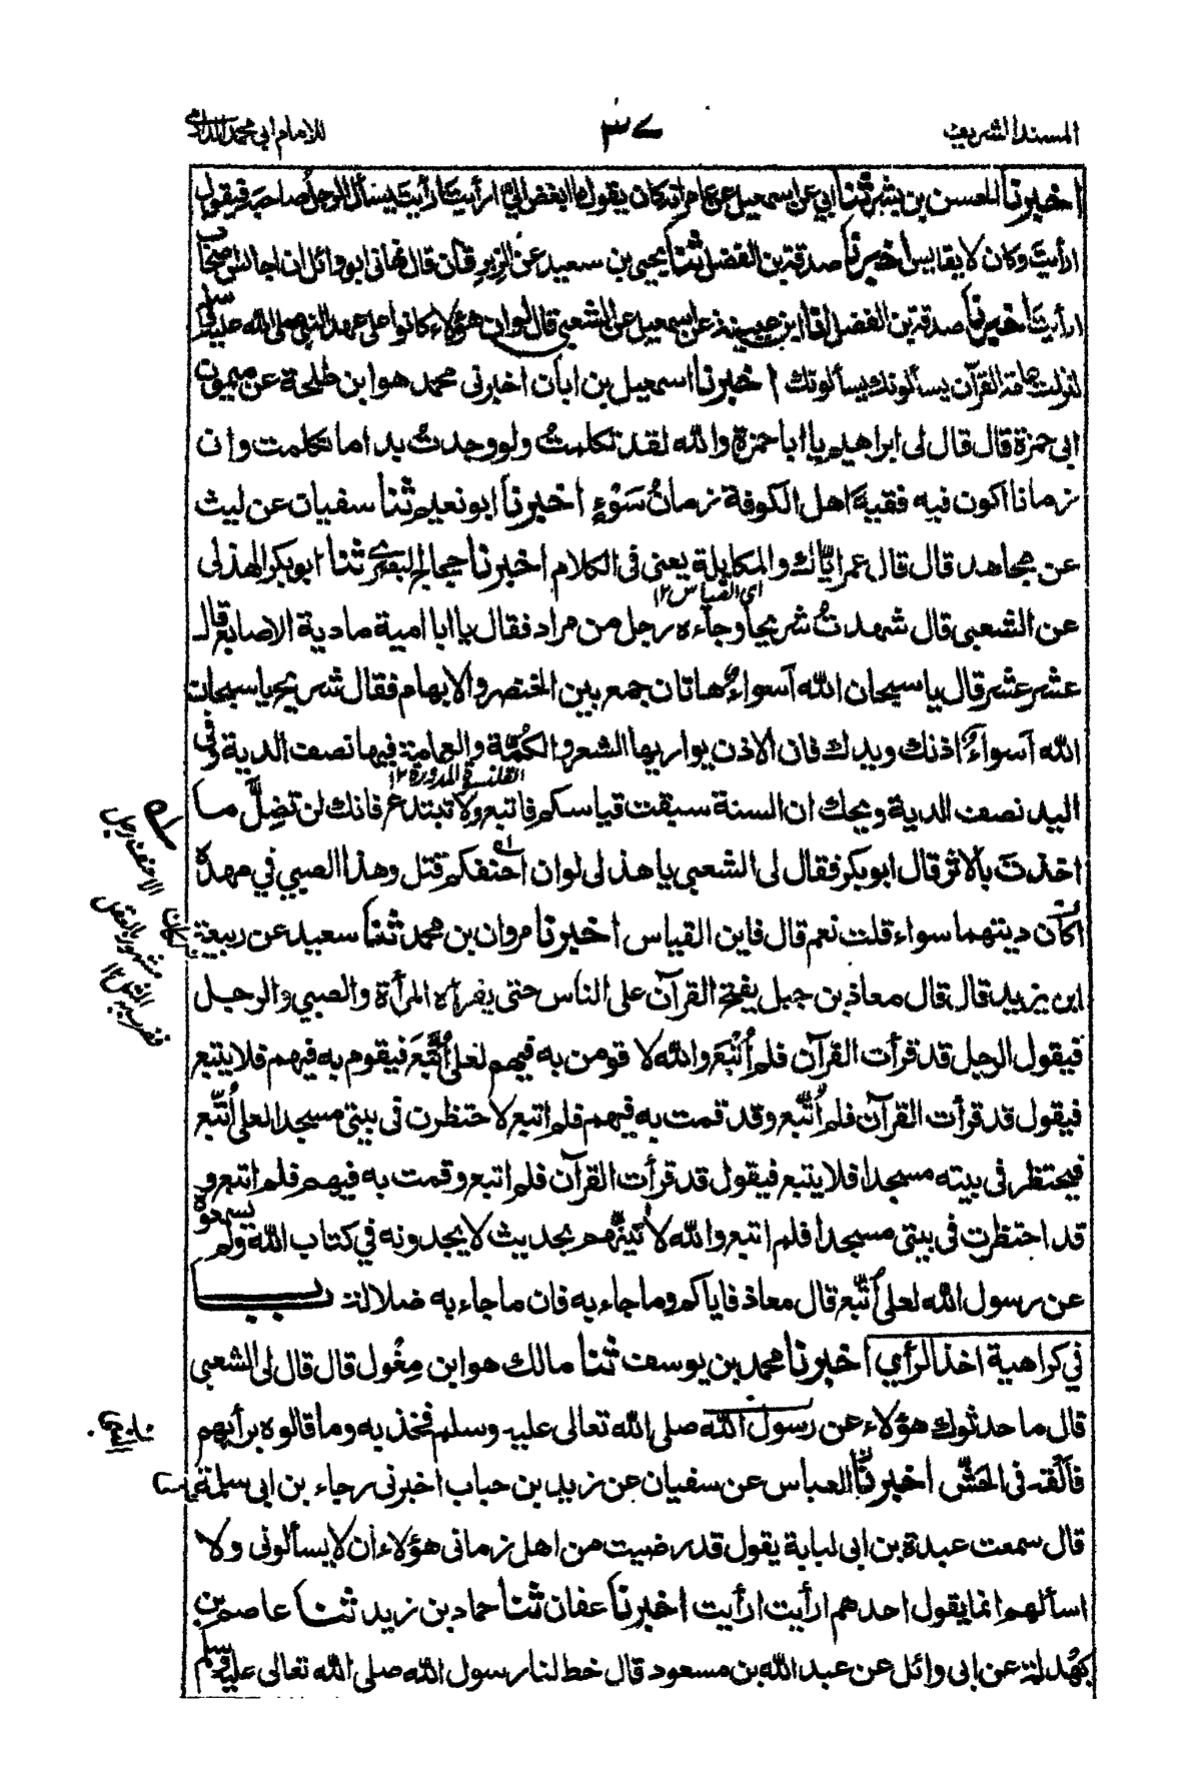 المسند الشريف
٣٧
للامام ابي محمد الدارمي
اخبرنا الحسن بن بشر ثنا ابي عن اسمعيل عن عامر انه كان يقول ما ابغض الي ارأيت ارأيت يسأل الرجل صاحبه فيقول
ارأيت وكان لا يقايس اخبرنا صدقة بن الفضل ثنا يحيى بن سعيد عن الزبرقان قال نهاني ابو وائل ان اجالس اصحاب
ارأيت اخبرنا صدقة بن الفضل انا ابن عيينة عن اسمعيل عن الشعبي قال لو ان هؤلاء كانوا على عهد النبي صلى الله عليه وسلم
لنزلت عامة القرآن يسألونك يسألونك اخبرنا اسمعيل بن ابان اخبرني محمد هو ابن طلحة عن ميمون
ابي حمزة قال قال لى ابراهيم يا ابا حمزة والله لقد تكلمتُ ولو وجدتُ بدا ما تكلمت وان
زمانا اكون فيه فقيهَ اهل الكوفة زمانُ سَوْءٍ اخبرنا ابو نعيم ثنا سفيان عن ليث
عن مجاهد قال قال عمر ايّاك والمكايلة يعنى فى الكلام اخبرنا حجاج البصري ثنا ابو بكر الهذلى
اى القياس ١٢
عن الشعبى قال شهدتُ شريحا وجاءه رجل من مراد فقال يا ابا امية ما دية الاصابع قال
عشر عشر قال يا سبحان الله آسواءٌ هاتان جمع بين الخنصر والابهام فقال شريح يا سبحان
الله آسواءٌ اذنك ويدك فان الاذن يواريها الشعر والكُمّة والعمامة فيها نصف الدية وفي
القلنسوة المدورة ١٢
اليد نصف الدية ويحك ان السنة سبقت قياسكم فاتبع ولا تبتدع فانك لن تضِلَّ ما
اخذتَ بالاثر قال ابو بكر فقال لى الشعبى يا هذلى لو ان احنفكم قتل وهذا الصبي في مهده
اكان ديتهما سواء قلت نعم قال فاين القياس اخبرنا مروان بن محمد ثنا سعيد عن ربيعة
ابن يزيد قال قال معاذ بن جبل يفتح القرآن على الناس حتى يقرأه المرأة والصبي والرجل
فيقول الرجل قد قرأت القرآن فلم اُتّبَع والله لا قومن به فيهم لعلى اُتّبَع فيقوم به فيهم فلا يتبع
فيقول قد قرأت القرآن فلم اُتّبع وقد قمت به فيهم فلم اتبع لا حتظرن فى بيتى مسجدا لعلى اُتّبع
فيحتظر فى بيته مسجدا فلا يتبع فيقول قد قرأت القرآن فلم اتبع وقمت به فيهم فلم اتبع و
قد احتظرت فى بيتى مسجدا فلم اتبع والله لآتينّهم بحديث لا يجدونه في كتاب الله ولم يسمعوه
عن رسول الله لعلى اُتّبع قال معاذ فاياكم وما جاء به فان ما جاء به ضلالة باب
في كراهية اخذ الرأي اخبرنا محمد بن يوسف ثنا مالك هو ابن مِغْول قال قال لى الشعبى
قال ما حدثوك هؤلاء عن رسول الله صلى الله تعالى عليه وسلم فخذ به وما قالوه برأيهم
فاَلْقه فى الحَشّ اخبرنا العباس عن سفيان عن زيد بن حباب اخبرنى رجاء بن ابى سلمة
قال سمعت عبدة بن ابى لبابة يقول قد رضيت من اهل زمانى هؤلاء ان لا يسألونى ولا
اسألهم انما يقول احدهم ارأيت ارأيت اخبرنا عفان ثنا حماد بن زيد ثنا عاصم بن
بَهْدلة عن ابى وائل عن عبد الله بن مسعود قال خط لنا رسول الله صلى الله تعالى عليه وسلم